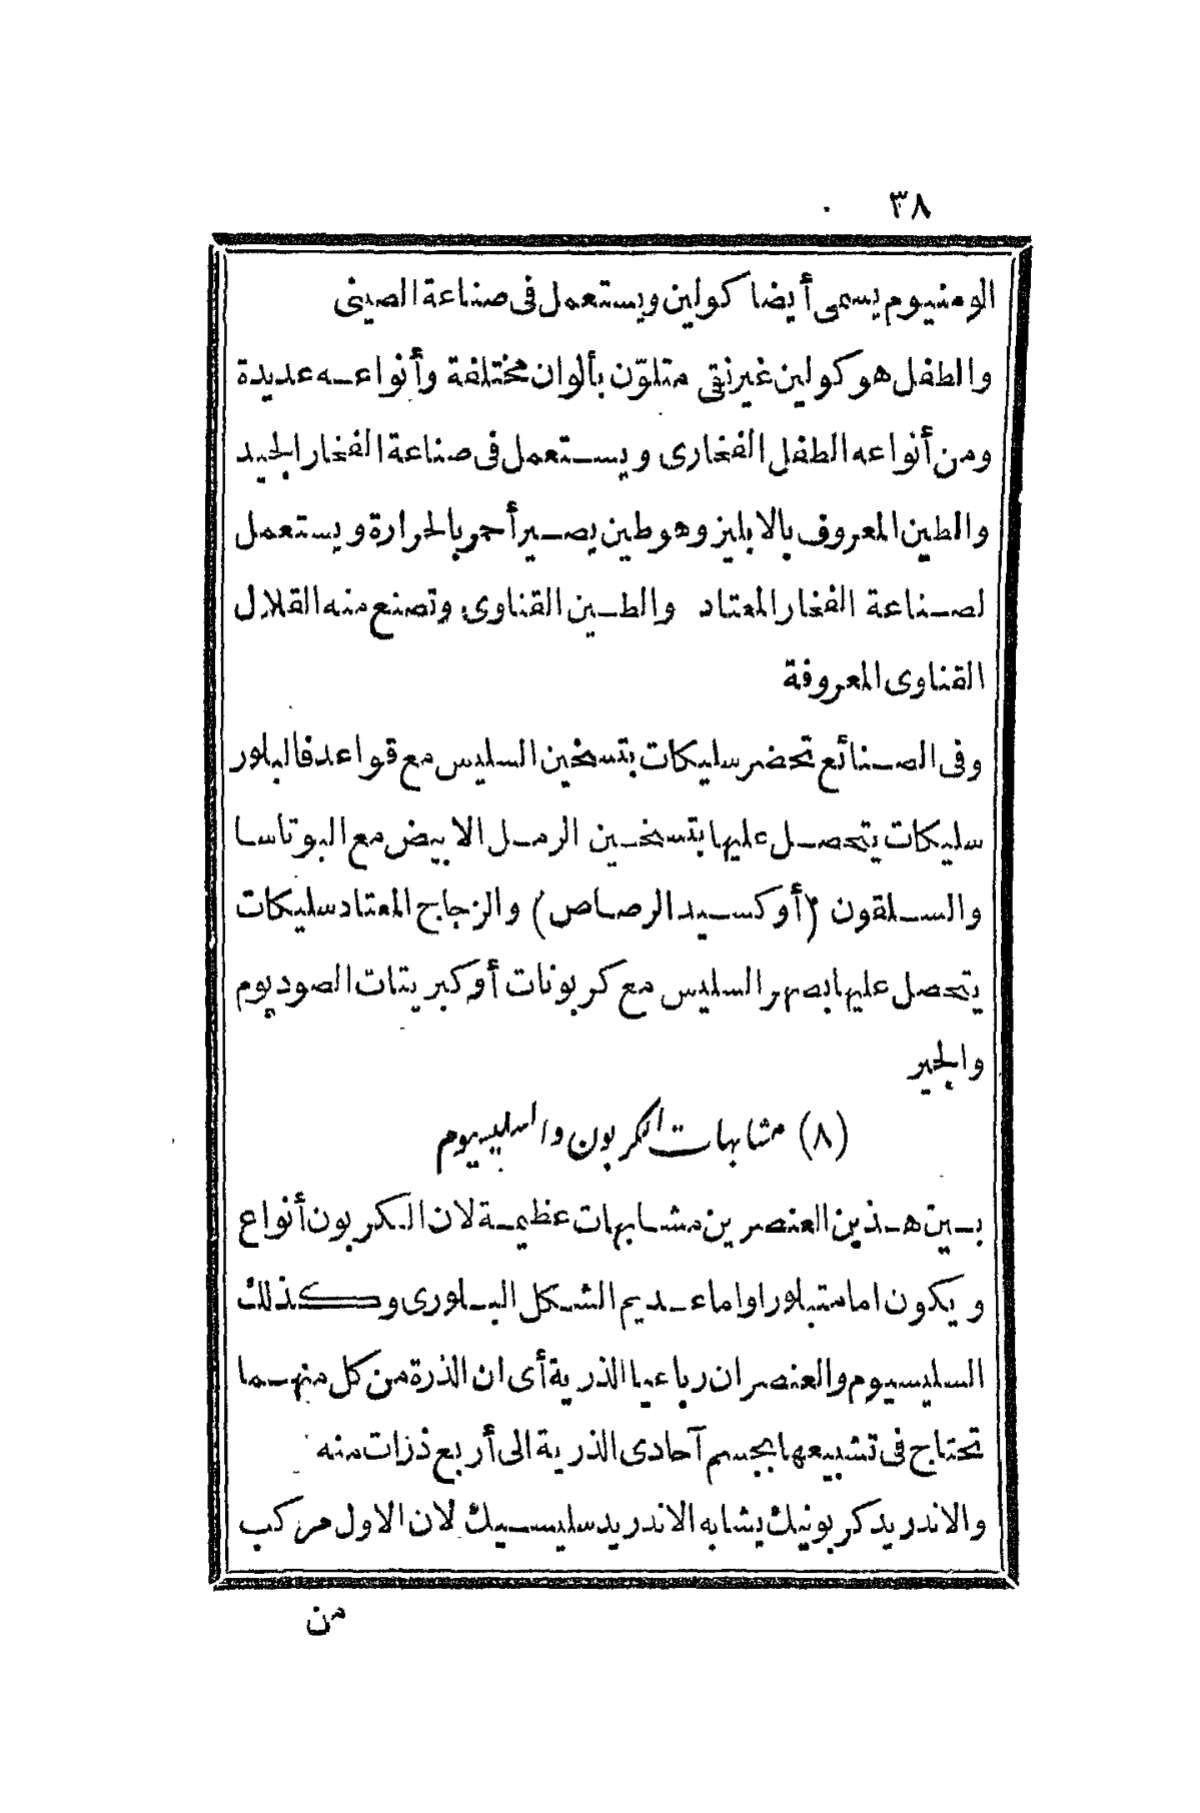 ٣٨
الومنيوم يسمى أيضا كولين ويستعمل فى صناعة الصينى
والطفل هو كولين غير نقى متلوّن بألوان مختلفة وأنواعه عديدة
ومن أنواعه الطفل الفخارى ويستعمل فى صناعة الفخار الجيد
والطين المعروف بالابليز وهو طين يصير أحمر بالحرارة ويستعمل
لصناعة الفخار المعتاد والطين القناوى وتصنع منه القلال
القناوى المعروفة
وفى الصنائع تحضر سليكات بتسخين السليس مع قواعد فالبلور
سليكات يتحصل عليها بتسخين الرمل الابيض مع البوتاسا
والسلقون (أوكسيد الرصاص) والزجاج المعتاد سليكات
يتحصل عليها بصهر السليس مع كربونات أو كبريتات الصوديوم
والجير
(٨) مشابهات الكربون والسليسيوم
بين هذين العنصرين مشابهات عظيمة لان الكربون أنواع
ويكون اما متبلورا واما عديم الشكل البلورى وكذلك
السليسيوم والعنصران رباعيا الذرية أى ان الذرة من كل منهما
تحتاج فى تشبيعها بجسم آحادى الذرية الى أربع ذرات منه
والاندريد كربونيك يشابه الاندريد سليسيك لان الاول مركب
من